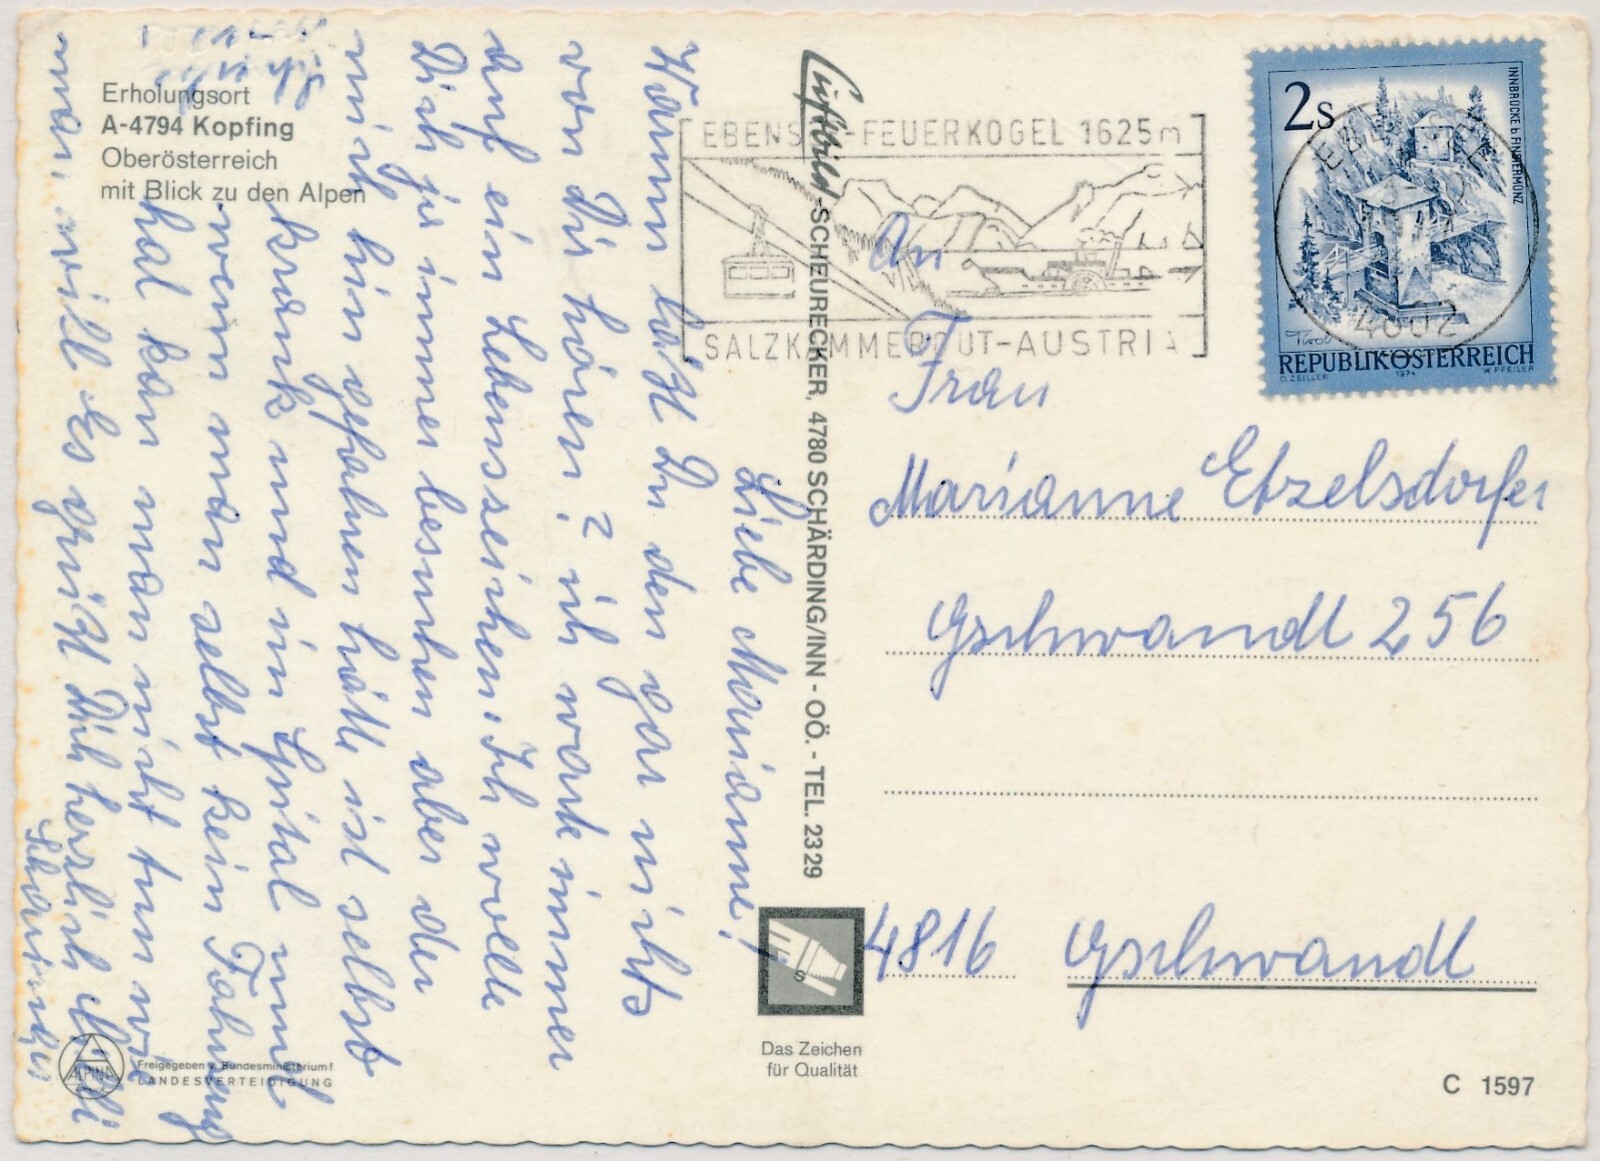 Erholungsort
A-4794 Kopfing
Oberösterreich
mit Blick zu den Alpen
Liebe Marianne!
Wann läßt Du den gar nichts
von Dir hören? ich warte immer
auf ein Lebensseichen. Ich wollte
Dich ja immer besuchen aber der
mich hin gefahren hätte ist selbst
krank und in Spital und
wenn man selbst kein Fahrzeug
hat kan man nicht tun was
man will Es grüßt Dich herslich
Luftbild-SCHEURECKER, 4780 SCHÄRDING/INN - OÖ. - TEL. 23 29
EBENS FEUERKOGEL 1625m
SALZKAMMERGUT-AUSTRIA
2s
INNBRÜCKE b FINSTERMÜNZ
Tirol
REPUBLIK ÖSTERREICH
O. ZEILLER 1974 W. PFEILER
4802
An
Frau
Marianne Etzelsdorfer
Gschwandt 256
4816 Gschwandt
Das Zeichen
für Qualität
ALPINA
Freigegeben v. Bundesministerium f
LANDESVERTEIDIGUNG
C 1597